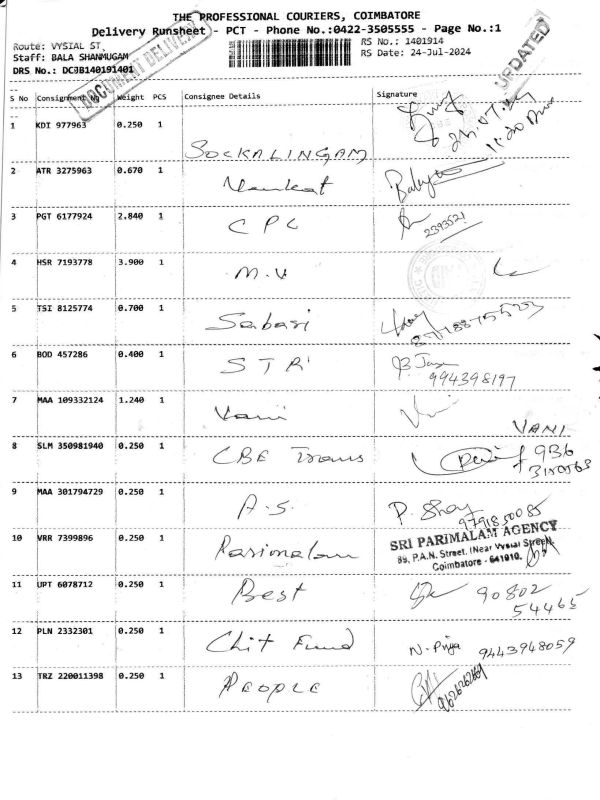 THE PROFESSIONAL COURIERS, COIMBATORE
Delivery Runsheet - PCT - Phone No.:0422-3505555 - Page No.:1
Route: VYSIAL ST
RS No.: 1401914
Staff: BALA SHANMUGAM
RS Date: 24-Jul-2024
DRS No.: DCJB140191401
DOCUMENT DELIVERY
UPDATED
S No Consignment No Weight PCS Consignee Details Signature
1 KDI 977963 0.250 1 SOCKALINGAM
2 ATR 3275963 0.670 1 Venkat
3 PGT 6177924 2.840 1 CPC 2393521
4 HSR 7193778 3.900 1 M.V
5 TSI 8125774 0.700 1 Sabari
6 BOD 457286 0.400 1 STR 994398197
7 MAA 109332124 1.240 1 Vani
VANI
8 SLM 350981940 0.250 1 CBE Trans 936
9 MAA 301794729 0.250 1 A.S. 9791850085
10 VRR 7399896 0.250 1 Parimalam
SRI PARIMALAM AGENCY
89, P.A.N. Street, (Near Vysial Street,
Coimbatore - 641010.
11 UPT 6078712 0.250 1 Best 90802
54465
12 PLN 2332301 0.250 1 Chit Fund N. Priya 9443948059
13 TRZ 220011398 0.250 1 PEOPLE